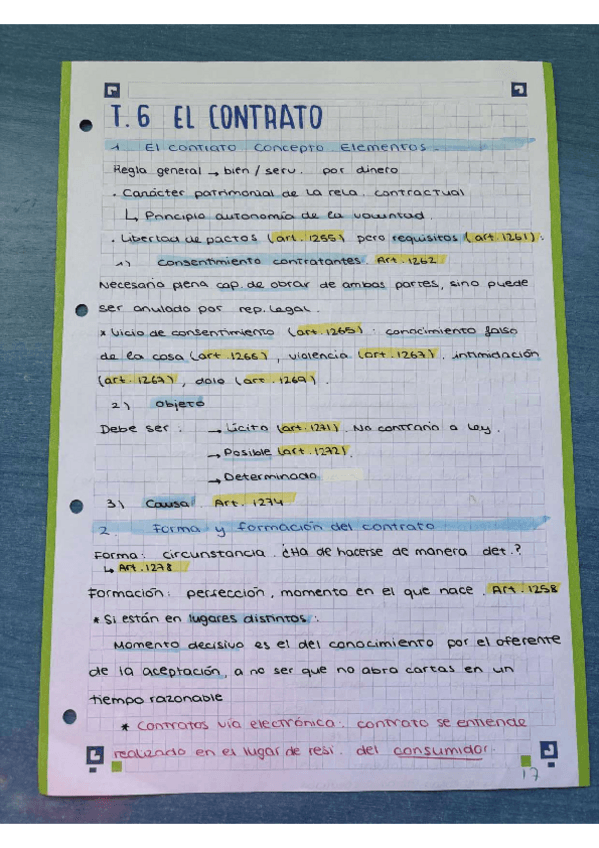 T.6 EL CONTRATO
1 El contrato Concepto Elementos.
Regla general → bien / serv. por dinero
· Carácter patrimonial de la rela. contractual
↳ Principio autonomía de la voluntad.
· Libertad de pactos (art. 1255) pero requisitos (art. 1261):
1) consentimiento contratantes. Art. 1262
Necesario plena cap. de obrar de ambas partes, sino puede
ser anulado por rep. legal.
* Vicio de consentimiento (art. 1265): conocimiento falso
de la cosa (art. 1266), violencia (art. 1267), intimidación
(art. 1267), dolo (art. 1269).
2) Objeto
Debe ser: → Lícito (art. 1271). No contrario a ley.
→ Posible (art. 1272).
→ Determinado
3) Causa. Art. 1274
2. Forma y formación del contrato
Forma: circunstancia. ¿Ha de hacerse de manera det.?
↳ Art. 1278
Formación: persección, momento en el que nace. Art. 1258
* Si están en lugares distintos:
Momento decisivo es el del conocimiento por el oferente
de la aceptación, a no ser que no abra cartas en un
tiempo razonable
* Contratos vía electrónica: contrato se entiende
realizado en el lugar de resi. del consumidor.
17